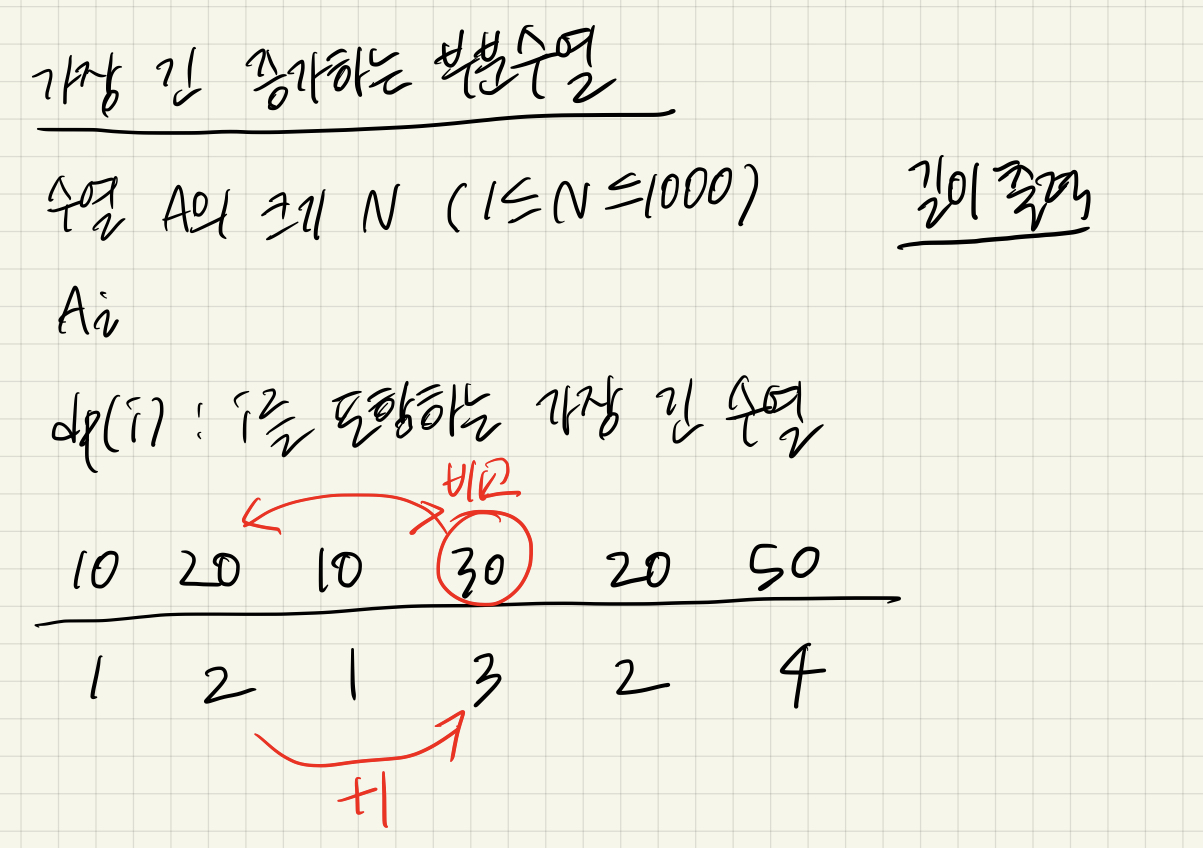 가장 긴 증가하는 부분수열
수열 A의 크기 N (1≤N≤1000)
길이 출력
Ai
dp(i) : i를 포함하는 가장 긴 수열
비교
10 20 10 30 20 50
1 2 1 3 2 4
+1